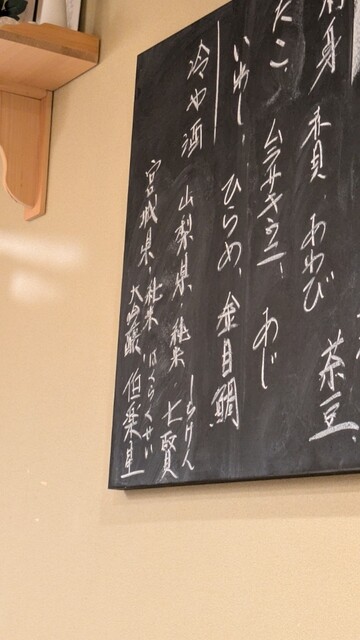 刺身 本貝、あわび 茶豆、
たこ、ムラサキウニ、あじ
いわし、ひらめ、金目鯛
冷や酒 山梨県 純米 七賢
しちけん
宮城県、純米大吟醸 伯楽星
はくらくせい